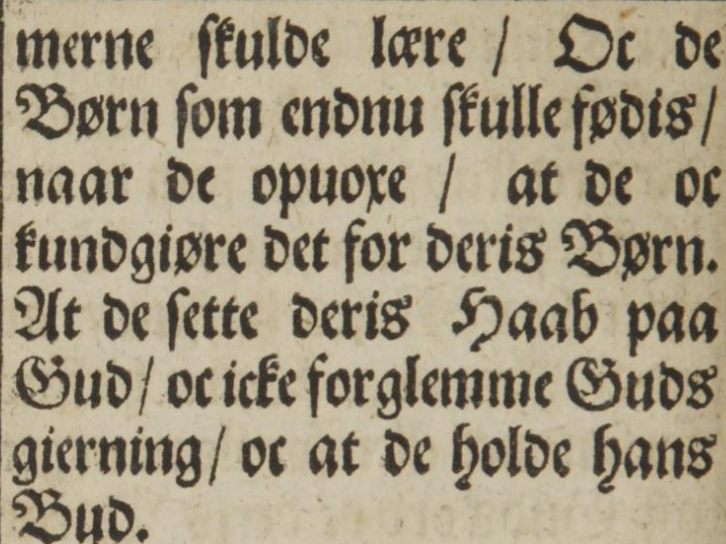 merne skulde lære / Oc de
Børn som endnu skulle fødis /
naar de opuoxe / at de oc
kundgiøre det for deris Børn.
At de sette deris Haab paa
Gud / oc icke forglemme Guds
gierning / oc at de holde hans
Bud.